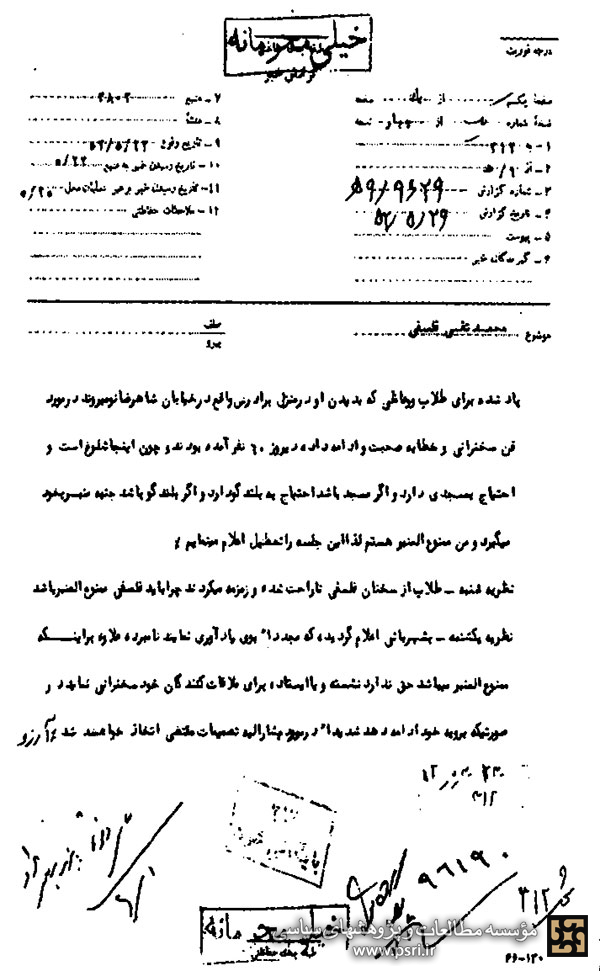 خیلی محرمانه
گزارش خبر
درجه فوریت
صفحه یکم از یک صفحه
نسخه شماره از چهار نسخه
۱ - به ۳۱۲
۲ - از
۳ - شماره گزارش
۴ - تاریخ گزارش
۵ - پیوست
۶ - گیرندگان خبر
۷ - منبع
۸ - منشأ
۹ - تاریخ وقوع
۱۰ - تاریخ رسیدن خبر به منبع ۵/۲۲
۱۱ - تاریخ رسیدن خبر به رهبر عملیات محل ۵/۲۵
۱۲ - ملاحظات حفاظتی
موضوع محمد تقی فلسفی
عطف
پیرو
یاد شده برای طلاب و وعاظی که بدیدن او در منزل برادرش واقع در خیابان شاهرضا نو میروند در مورد
فن سخنرانی و خطابه صحبت و ادامه داده دیروز ۶۰ نفر آمده بودند و چون اینجا شلوغ است و
احتیاج بمسجدی دارد و اگر مسجد باشد احتیاج به بلندگو دارد و اگر بلندگو باشد جنبه منبر بخود
میگیرد و من ممنوع المنبر هستم لذا این جلسه را تعطیل اعلام مینمایم
نظریه شنبه - طلاب از سخنان فلسفی ناراحت شده و زمزمه میکردند چرا باید فلسفی ممنوع المنبر باشد
نظریه یکشنبه - بشهربانی اعلام گردیده که مجددا" بوی یادآوری نمایند نامبرده علاوه براینکه
ممنوع المنبر میباشد حق ندارد نشسته و یا ایستاده برای ملاقات کنندگان خود سخنرانی نماید و
صورتیکه برویه خود ادامه دهد شدیدا" در مورد مشارالیه تصمیمات مقتضی اتخاذ خواهند شد
۳۱۲
۹۶۱۹۰
۳۱۲
خیلی محرمانه
طبقه بندی حفاظتی
مؤسسه مطالعات و پژوهشهای سیاسی
www.psri.ir
۶۶-۱۲۰